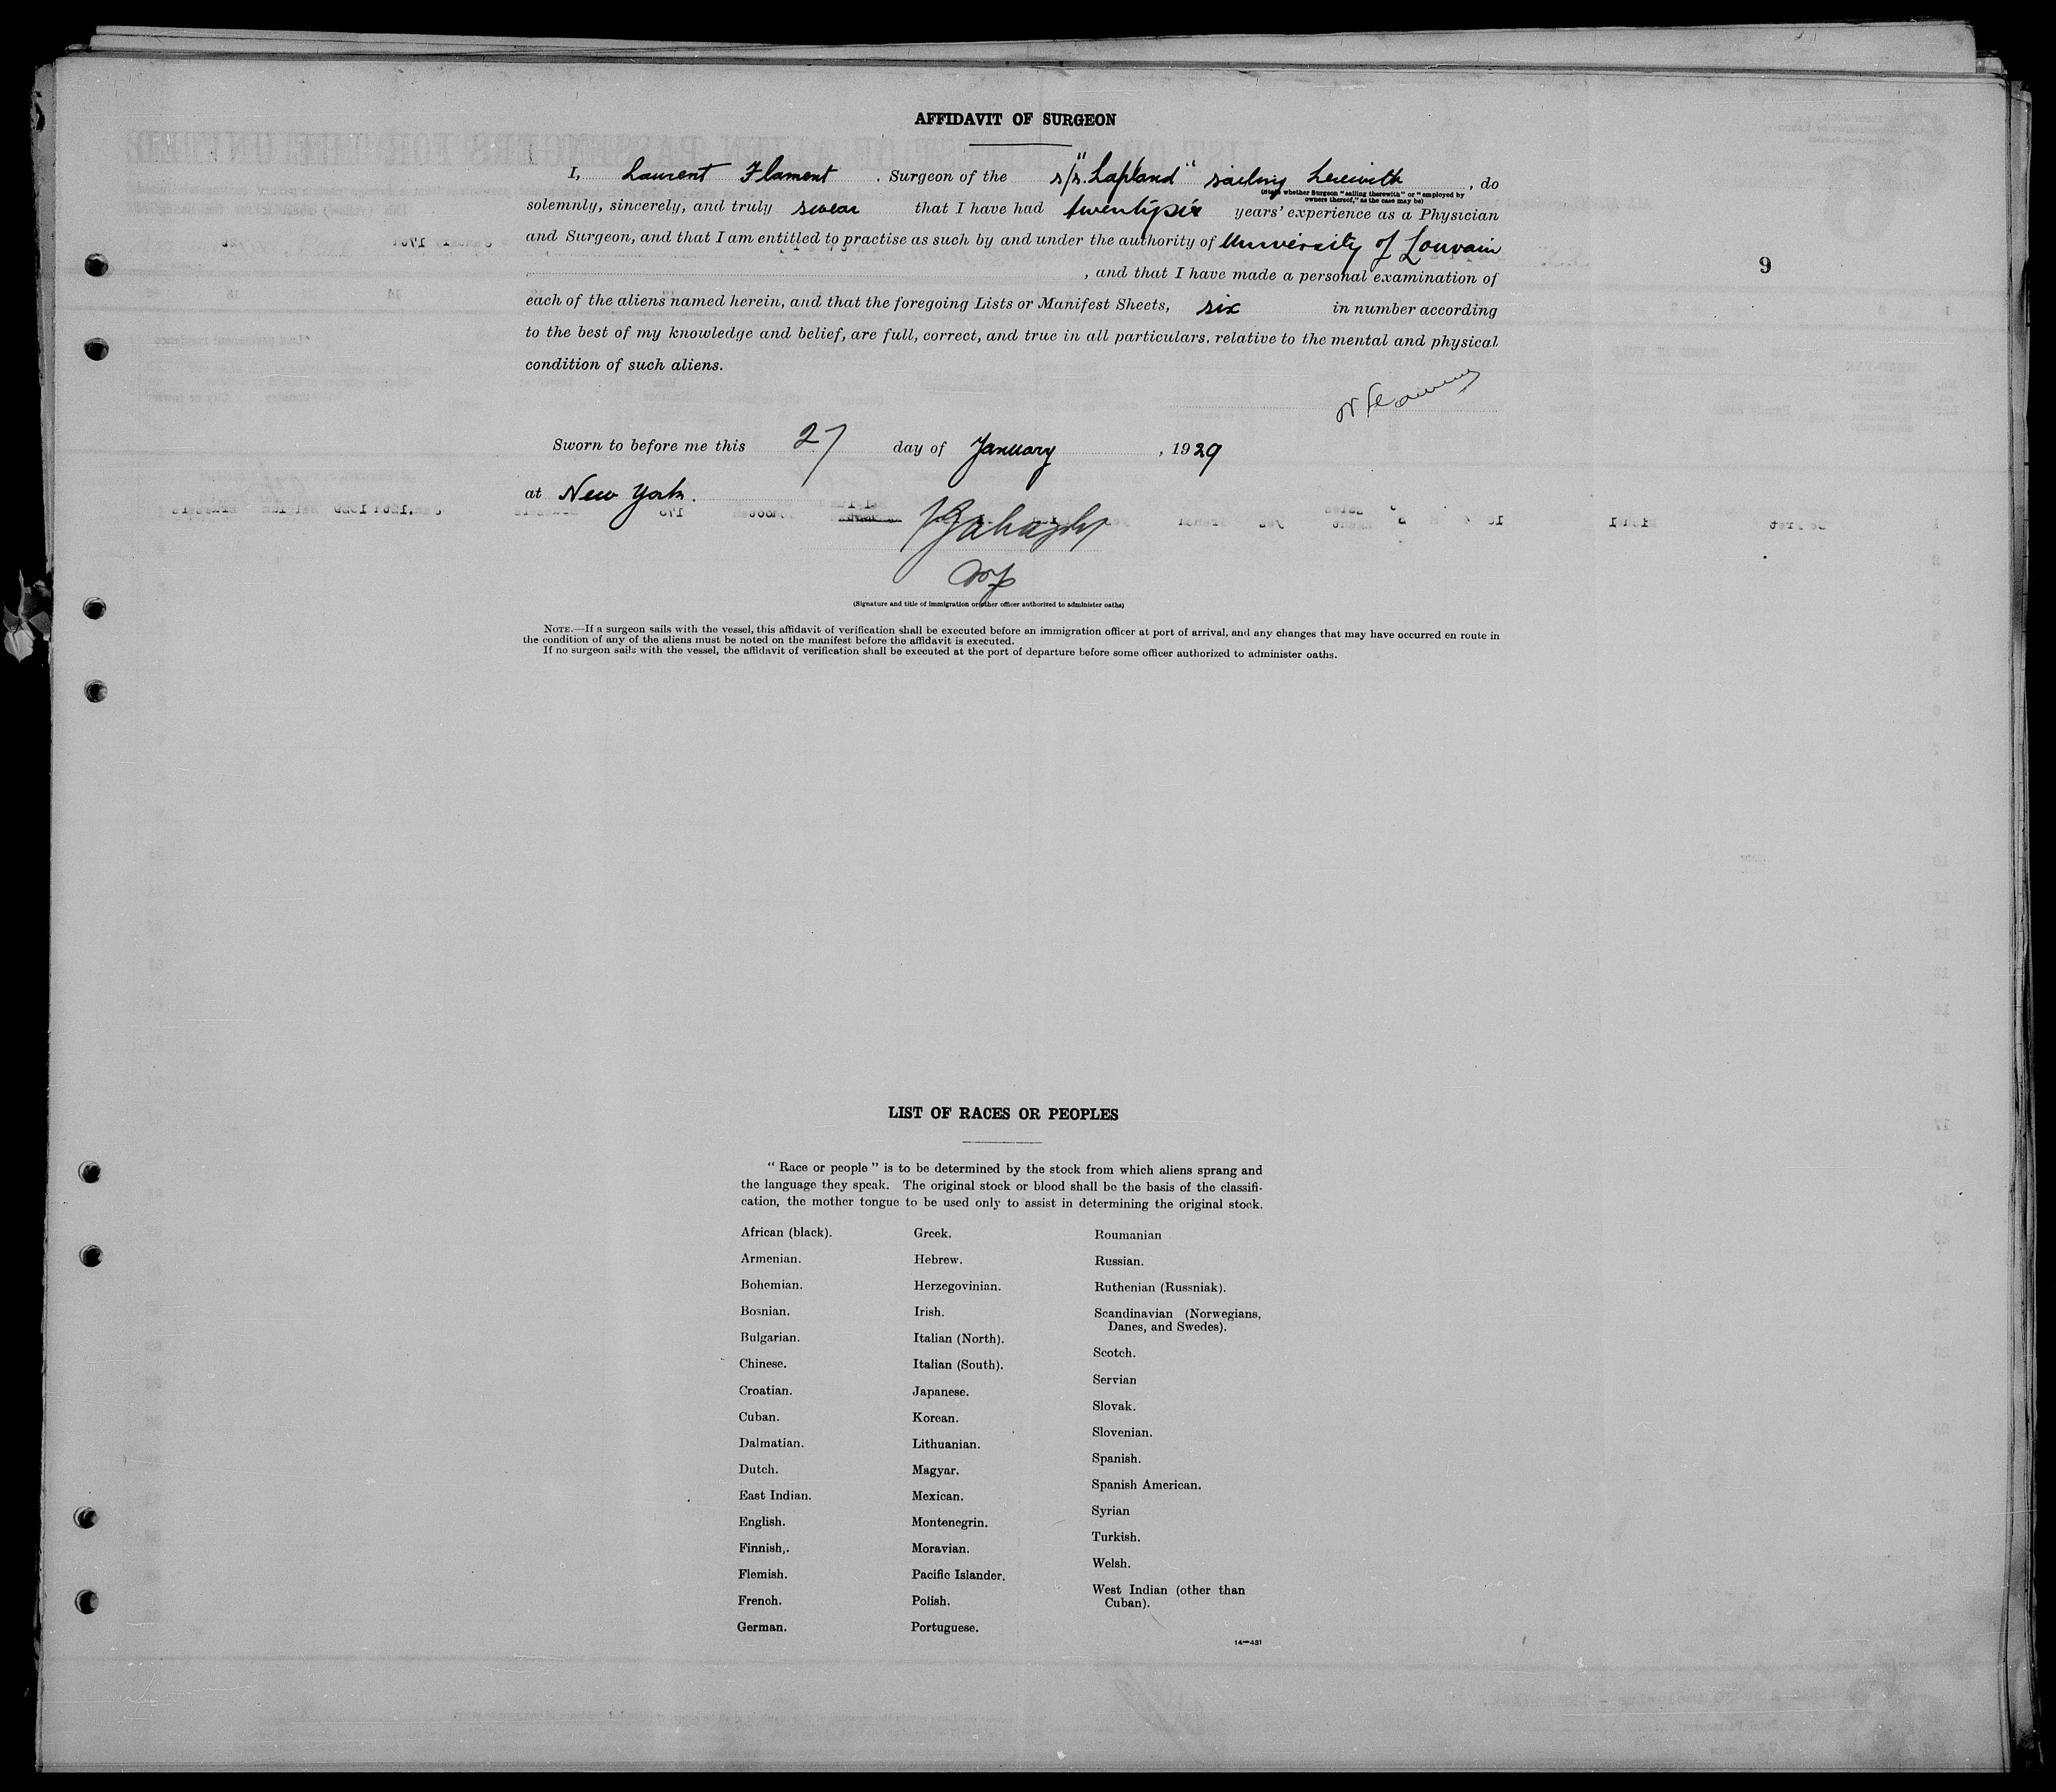 AFFIDAVIT OF SURGEON
I, Laurent Flament . Surgeon of the s/s. "Lapland" sailing herewith , do
(State whether Surgeon "sailing therewith" or "employed by
owners thereof," as the case may be)
solemnly, sincerely, and truly swear that I have had twentysix years' experience as a Physician
and Surgeon, and that I am entitled to practise as such by and under the authority of University of Louvain
, and that I have made a personal examination of
9
each of the aliens named herein, and that the foregoing Lists or Manifest Sheets, six in number according
to the best of my knowledge and belief, are full, correct, and true in all particulars, relative to the mental and physical
condition of such aliens.
Sworn to before me this 27 day of January , 1929
at New York.
(Signature and title of immigration or other officer authorized to administer oaths)
NOTE.—If a surgeon sails with the vessel, this affidavit of verification shall be executed before an immigration officer at port of arrival, and any changes that may have occurred en route in
the condition of any of the aliens must be noted on the manifest before the affidavit is executed.
If no surgeon sails with the vessel, the affidavit of verification shall be executed at the port of departure before some officer authorized to administer oaths.
LIST OF RACES OR PEOPLES
"Race or people" is to be determined by the stock from which aliens sprang and
the language they speak. The original stock or blood shall be the basis of the classifi-
cation, the mother tongue to be used only to assist in determining the original stock.
African (black).
Armenian.
Bohemian.
Bosnian.
Bulgarian.
Chinese.
Croatian.
Cuban.
Dalmatian.
Dutch.
East Indian.
English.
Finnish,.
Flemish.
French.
German.
Greek.
Hebrew.
Herzegovinian.
Irish.
Italian (North).
Italian (South).
Japanese.
Korean.
Lithuanian.
Magyar.
Mexican.
Montenegrin.
Moravian.
Pacific Islander.
Polish.
Portuguese.
Roumanian
Russian.
Ruthenian (Russniak).
Scandinavian (Norwegians,
Danes, and Swedes).
Scotch.
Servian
Slovak.
Slovenian.
Spanish.
Spanish American.
Syrian
Turkish.
Welsh.
West Indian (other than
Cuban).
14—431